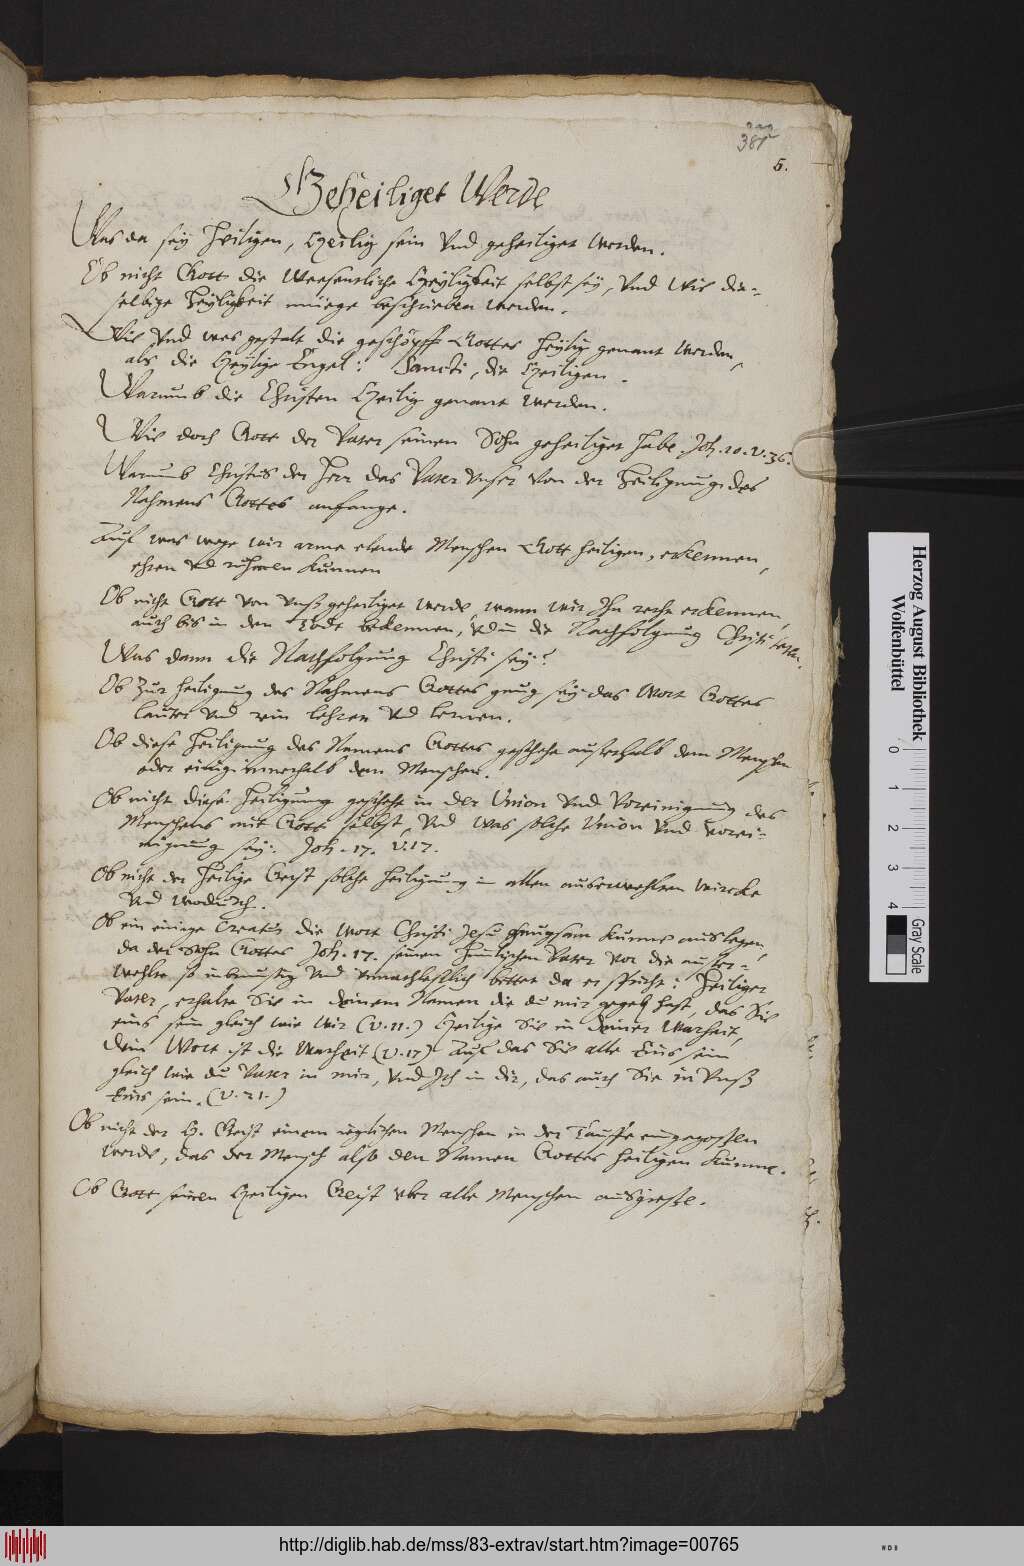 381
5.
Geheiliget Werde
Was da sey heiligen, Heilig sein Vnd geheiliget werden.
Ob nicht Gott die Weesentliche Heyligkeit selbst sey, Vnd Wie die-
selbige Heyligkeit müege beschrieben werden.
Wie Vnd was gestalt die geschöpff Gottes heylig genant werden,
als die Heylige Engel: Sancti, die Heiligen.
Warumb die Christen Heilig genant werden.
Wie doch Gott der Vater seinen Sohn geheiliget habe. Joh. 10. v. 36.
Warumb Christus der Herr das Vater Vnser Von der Heiligung des
Nahmens Gottes anfange.
Auf was wege wir arme elende Menschen Gott heiligen, erkennen,
ehren Vnd rühmen kunnen
Ob nicht Gott von vnß geheiliget werde, wann wir Ihn recht erkennen,
auch bis in den Todt bekennen, Vnd in die Nachfolgung Christi
Was dann die Nachfolgung Christi sey?
Ob Zur heiligung des Nahmens Gottes gnug sey das Wort Gottes
lauter Vnd rein lehren Vnd lernen.
Ob diese Heiligung des Namens Gottes geschehe ausserhalb dem Menschen
oder einig innerhalb dem Menschen.
Ob nicht diese Heiligung geschehe in der Union Vnd Vereinigung des
Menschens mit Gott selbst, Vnd Was solche Union Vnd Verei-
nigung sey: Joh. 17. v. 17.
Ob nicht der Heilige Geist solche heiligung in allen ausserwehlten wircke
Vnd wodurch.
Ob ein einige Creatur die Wort Christi Jesu gnugsam kunne auslegen,
da der Sohn Gottes Joh. 17. seinen himlischen Vater vor die ausser-
wehlte so inbrunstig Vnd bettet da er spricht: Heiliger
Vater, erhalte Sie in deinem Namen die du mir gegeben hast, das Sie
eins sein gleich wie Wir (v. 11.) Heilige Sie in deiner Warheit,
dein Wort ist die Warheit (v. 17) Auf das Sie alle Eins sein
gleich wie du Vater in mir, Vnd Ich in dir, das auch Sie in Vnß
Eins sein. (v. 21.)
Ob nicht der H. Geist einem iglichen Menschen in der Tauffe eingegossen
werde, das der Mensch also den Namen Gottes heiligen kunne.
Ob Gott seinen Heiligen Geist vber alle Menschen ausgiesse.
Herzog August Bibliothek
Wolfenbüttel
0 1 2 3 4
Gray Scale
http://diglib.hab.de/mss/83-extrav/start.htm?image=00765
WDB